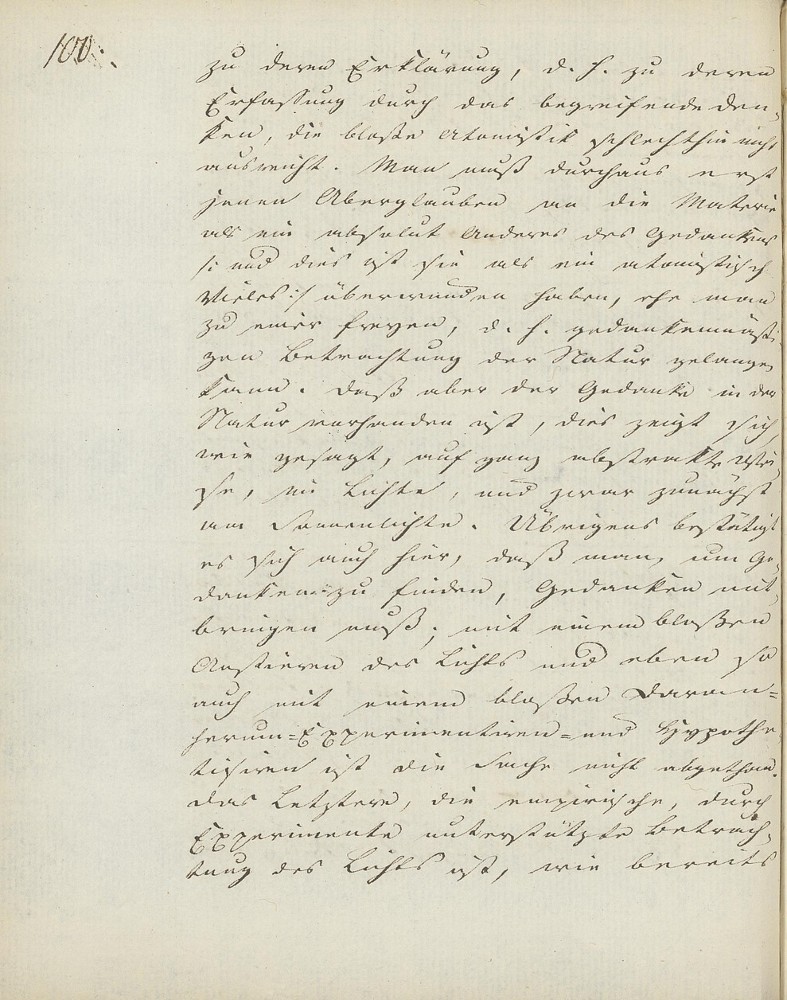 100.
zu deren Erklärung, d. h. zu deren
Erfassung durch das begreifende Den-
ken, die bloße Atomistik schlechthin nicht
ausreicht. Man muß durchaus erst
jenen Aberglauben an die Materie
als ein absolut Anderes des Gedankens
/: und dies ist sie als ein atomistisch
Vieles :/ überwunden haben, ehe man
zu einer freyen, d. h. gedankenmäßi-
gen Betrachtung der Natur gelangen
kann. Daß aber der Gedanke in der
Natur vorhanden ist, dies zeigt sich,
wie gesagt, auf ganz abstrakte Wei-
se, im Lichte, und zwar zunächst
am Sonnenlichte. Übrigens bestätigt
es sich auch hier, daß man, um Ge-
danken zu finden, Gedanken mit-
bringen muß; mit einem bloßen
Anstieren des Lichts und eben so
auch mit einem bloßen Daran=
herum=Experimentiren=und Hypothe
tisiren ist die Sache nicht abgethan.
Das Letztere, die empirische, durch
Experimente unterstützte Betrach-
tung des Lichts ist, wie bereits